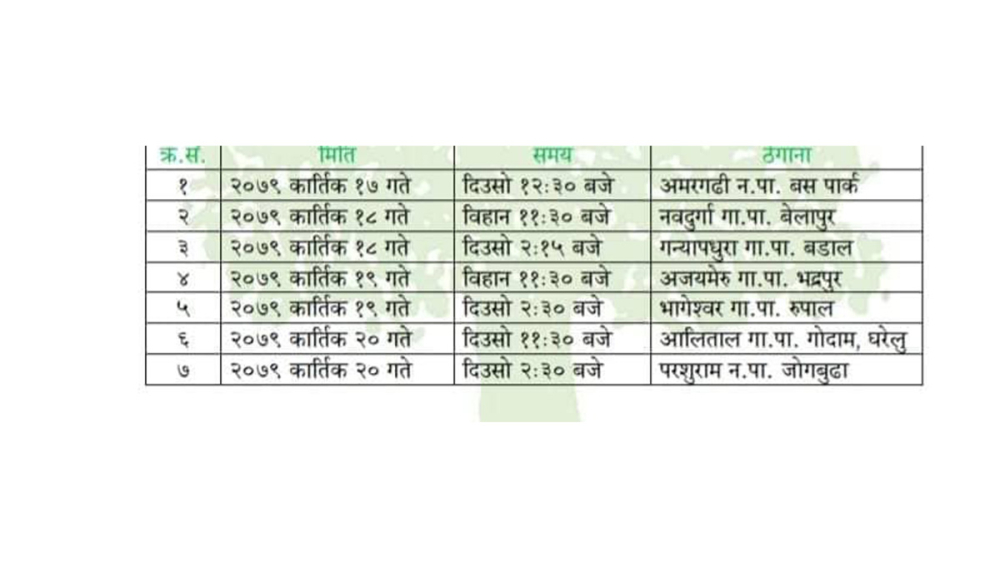 क्र.सं. मिति समय ठेगाना
१ २०७९ कार्तिक १७ गते दिउसो १२:३० बजे अमरगढी न.पा. बस पार्क
२ २०७९ कार्तिक १८ गते विहान ११:३० बजे नवदुर्गा गा.पा. बेलापुर
३ २०७९ कार्तिक १८ गते दिउसो २:१५ बजे गन्यापधुरा गा.पा. बडाल
४ २०७९ कार्तिक १९ गते विहान ११:३० बजे अजयमेरु गा.पा. भद्रपुर
५ २०७९ कार्तिक १९ गते दिउसो २:३० बजे भागेश्वर गा.पा. रुपाल
६ २०७९ कार्तिक २० गते दिउसो ११:३० बजे आलिताल गा.पा. गोदाम, घरेलु
७ २०७९ कार्तिक २० गते दिउसो २:३० बजे परशुराम न.पा. जोगबुढा